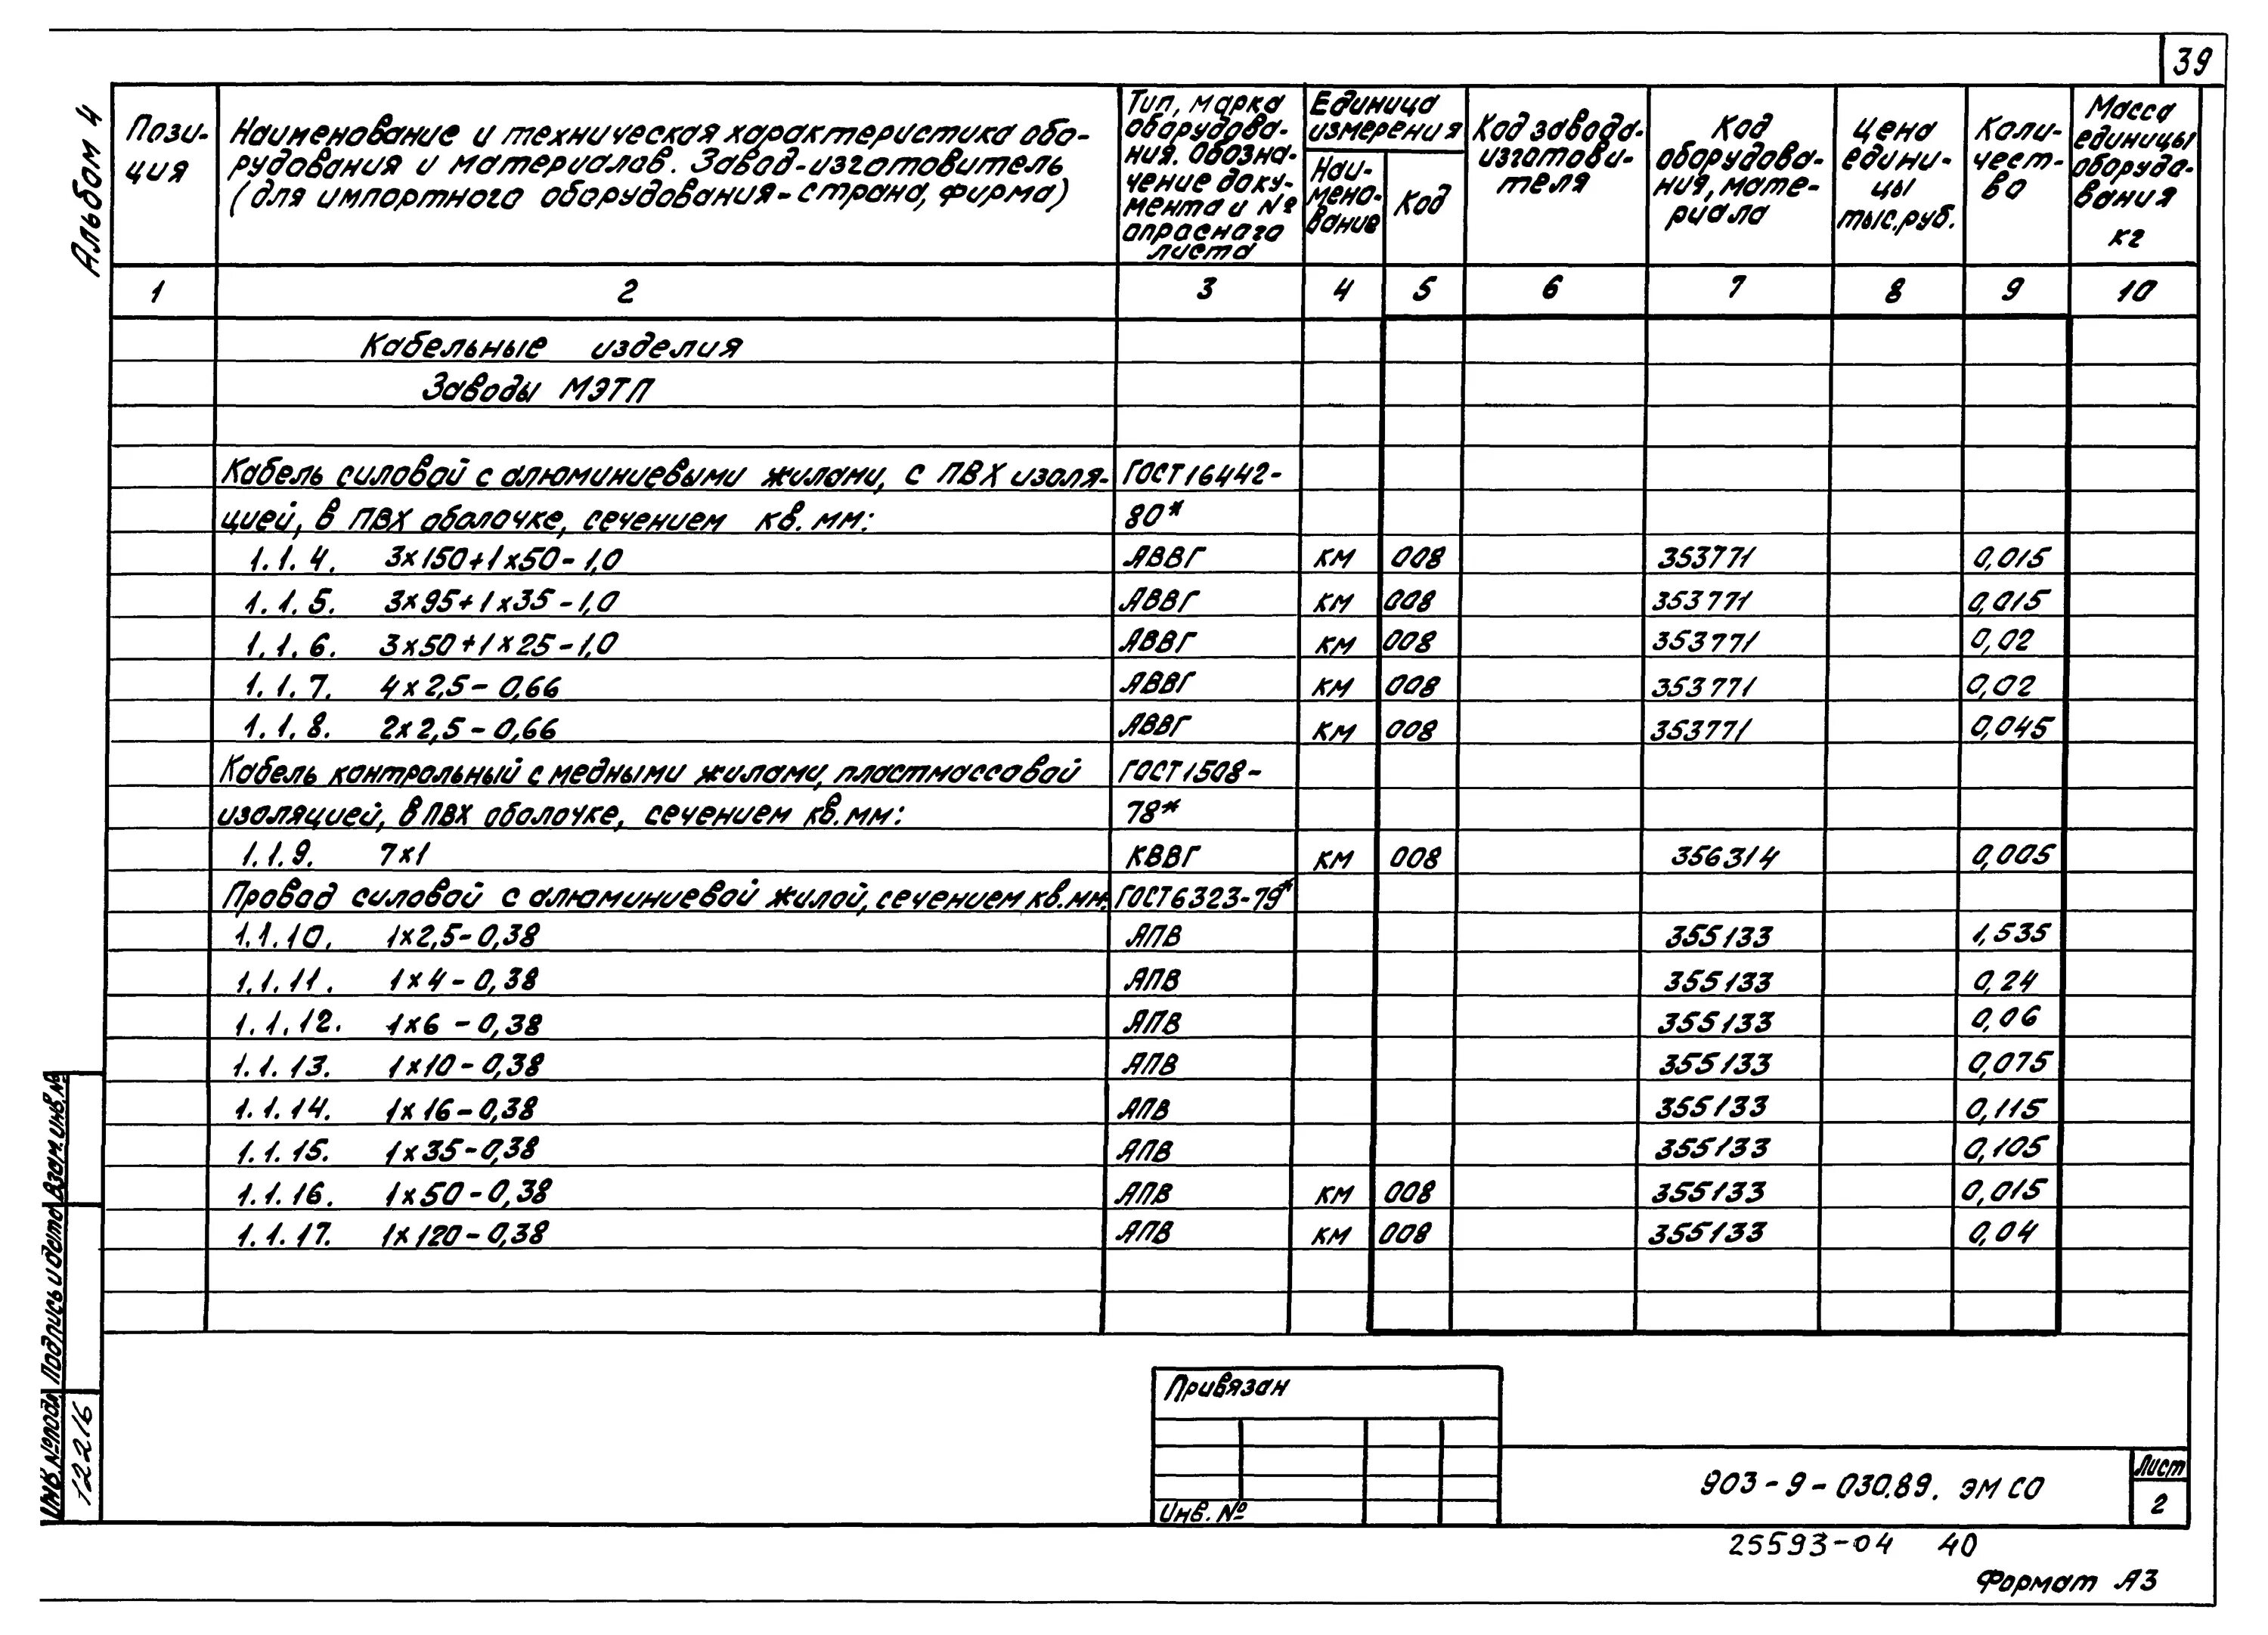 39
Альбом 4
Пози-
ция
Наименование и техническая характеристика обо-
рудования и материалов. Завод-изготовитель
(для импортного оборудования-страна, фирма)
Тип, марка
оборудова-
ния. Обозна-
чение доку-
мента и №
опросного
листа
Единица
измерения
Наи-
мено-
вание
Код
Код завода-
изготови-
теля
Код
оборудова-
ния, мате-
риала
Цена
едини-
цы
тыс.руб.
Коли-
чест-
во
Масса
единицы
оборудо-
вания
кг
1 2 3 4 5 6 7 8 9 10
Кабельные изделия
Заводы МЭТП
Кабель силовой с алюминиевыми жилами, с ПВХ изоля- ГОСТ 16442-
цией, в ПВХ оболочке, сечением кв. мм: 80*
1.1.4. 3х150+1х50-1,0 АВВГ км 008 353771 0,015
1.1.5. 3х95+1х35-1,0 АВВГ км 008 353771 0,015
1.1.6. 3х50+1х25-1,0 АВВГ км 008 353771 0,02
1.1.7. 4х2,5-0,66 АВВГ км 008 353771 0,02
1.1.8. 2х2,5-0,66 АВВГ км 008 353771 0,045
Кабель контрольный с медными жилами, пластмассовой ГОСТ 1508-
изоляцией, в ПВХ оболочке, сечением кв.мм: 78*
1.1.9. 7х1 КВВГ км 008 356314 0,005
Провод силовой с алюминиевой жилой, сечением кв.мм. ГОСТ 6323-79*
1.1.10. 1х2,5-0,38 АПВ 355133 1,535
1.1.11. 1х4-0,38 АПВ 355133 0,24
1.1.12. 1х6-0,38 АПВ 355133 0,06
1.1.13. 1х10-0,38 АПВ 355133 0,075
1.1.14. 1х16-0,38 АПВ 355133 0,115
1.1.15. 1х35-0,38 АПВ 355133 0,105
1.1.16. 1х50-0,38 АПВ км 008 355133 0,015
1.1.17. 1х120-0,38 АПВ км 008 355133 0,04
Взам. инв. №
Подпись и дата
Инв. № подл.
12216
Привязан
Инв. №
903-9-030.89. ЭМ СО
Лист
2
25593-04 40
Формат А3